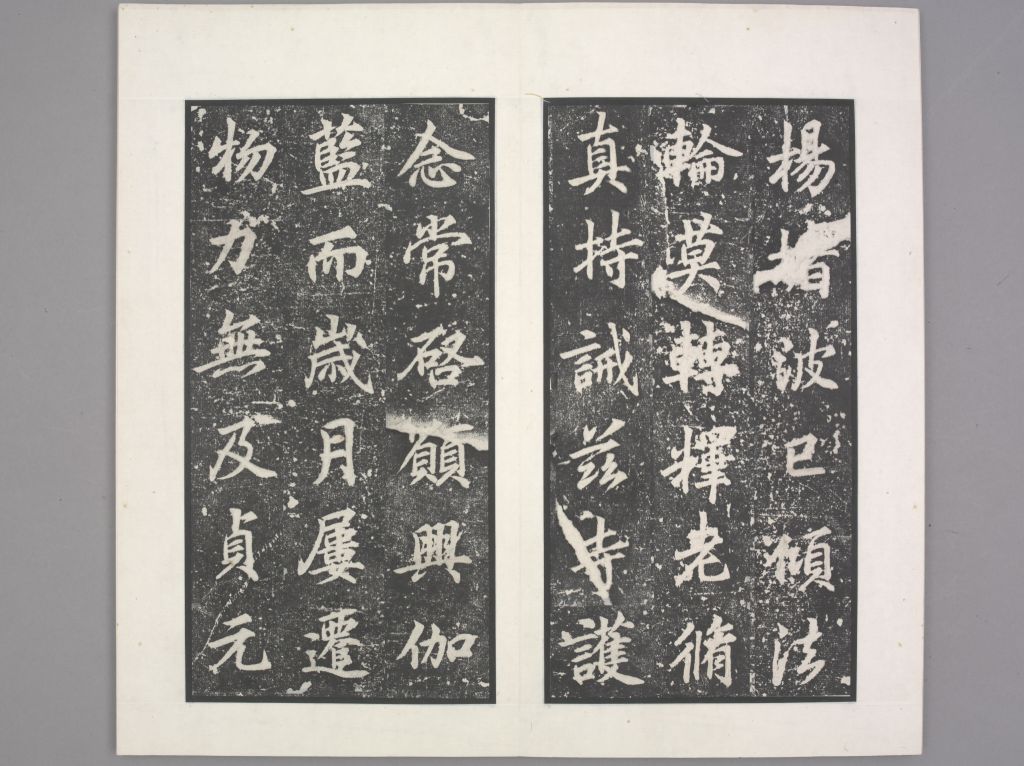 楊㨋波已傾法
輪莫轉釋老脩
真持誡茲寺護
念常啓願興伽
藍而歲月屢遷
物力無及貞元